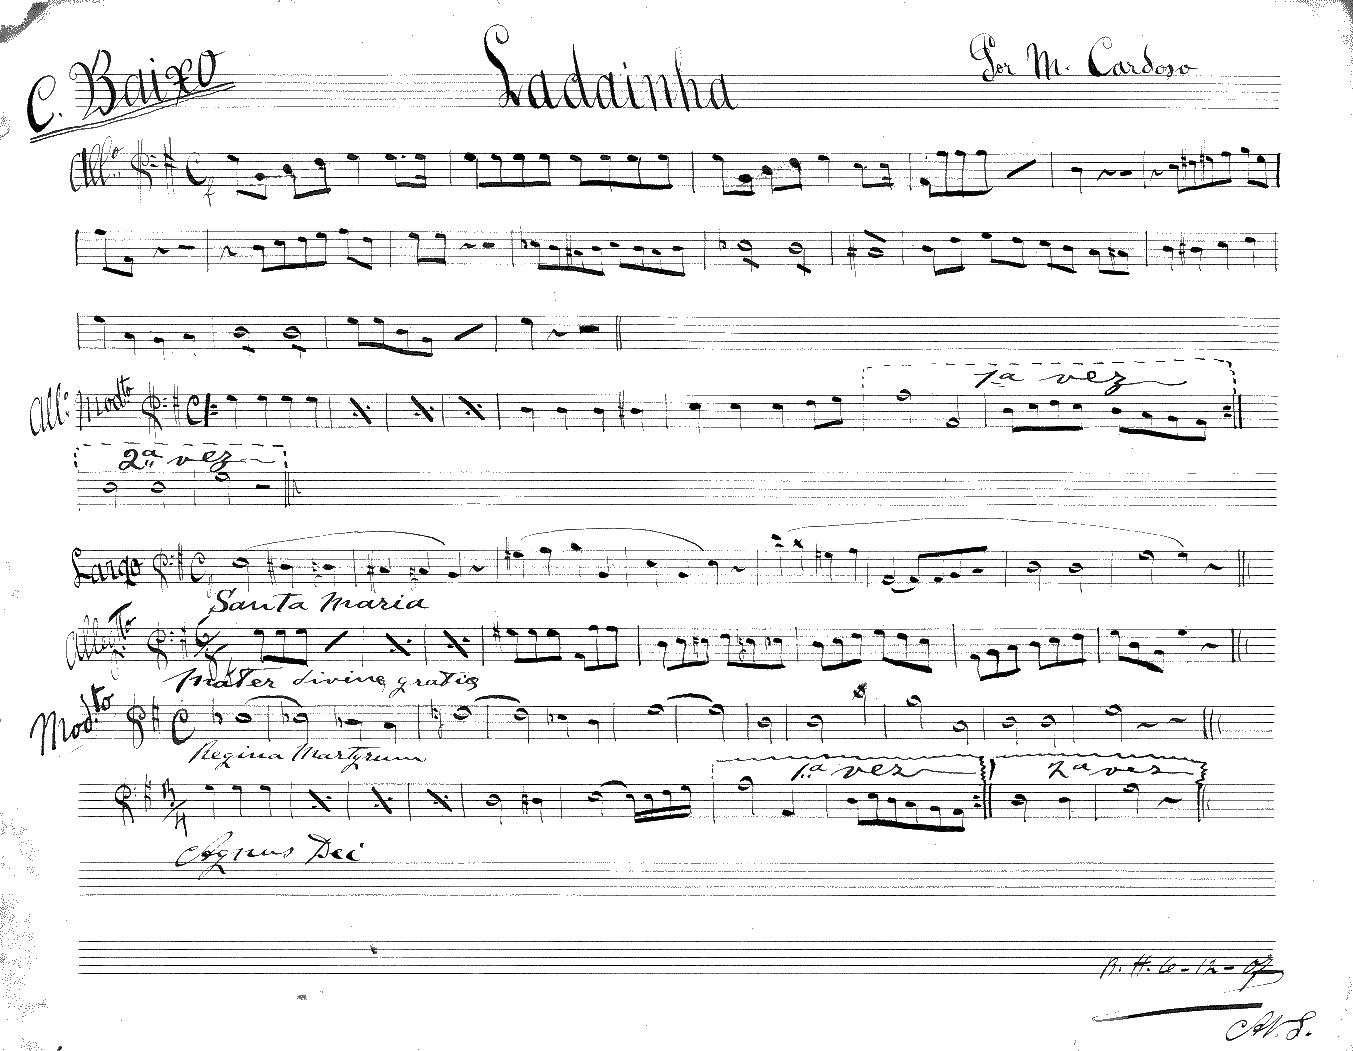 C. Baixo
Ladainha
Por M. Cardoso
All.º
All.º Mod.to
1.a vez
2.a vez
Largo
Santa Maria
Alleg.to
Mater divine gratie
Mod.to
Regina Martyrum
1.a vez
2a vez
Agnus Dei
B. H. 6-12-07